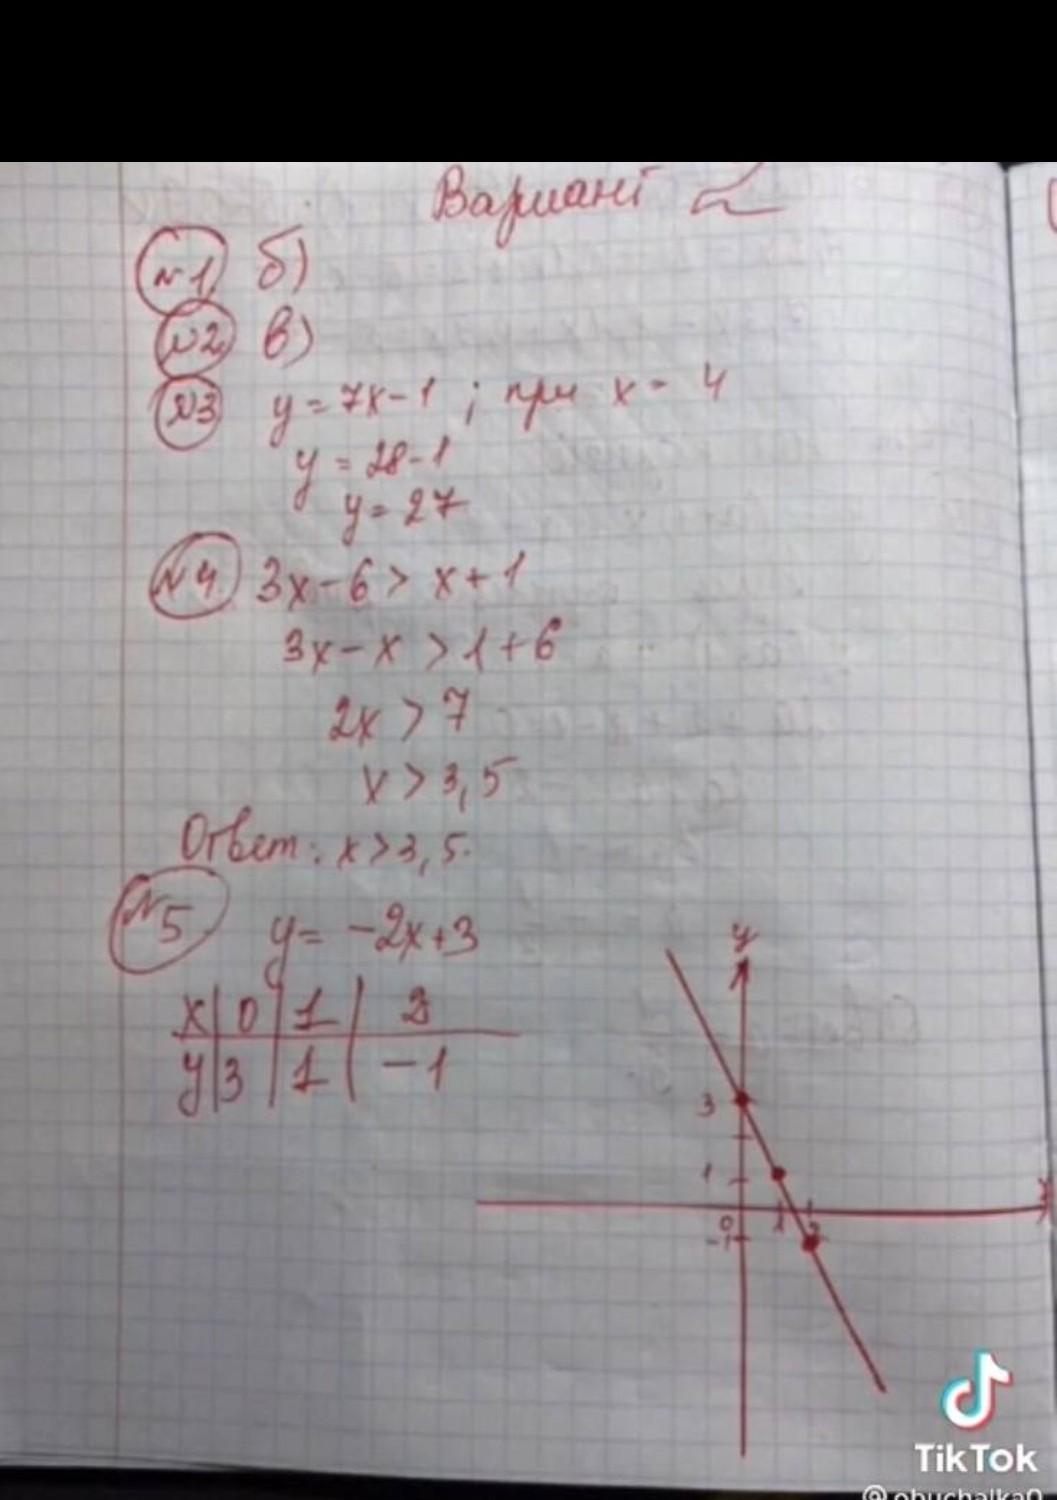 Вариант 2
№1 б)
№2 в)
№3 y = 7x - 1 ; при x = 4
y = 28 - 1
y = 27
№4 3x - 6 > x + 1
3x - x > 1 + 6
2x > 7
x > 3,5
Ответ: x > 3,5.
№5 y = -2x + 3
x | 0 | 1 | 2
y | 3 | 1 | -1
y
3
1
0 1 2 x
-1
TikTok
@obuchalka0